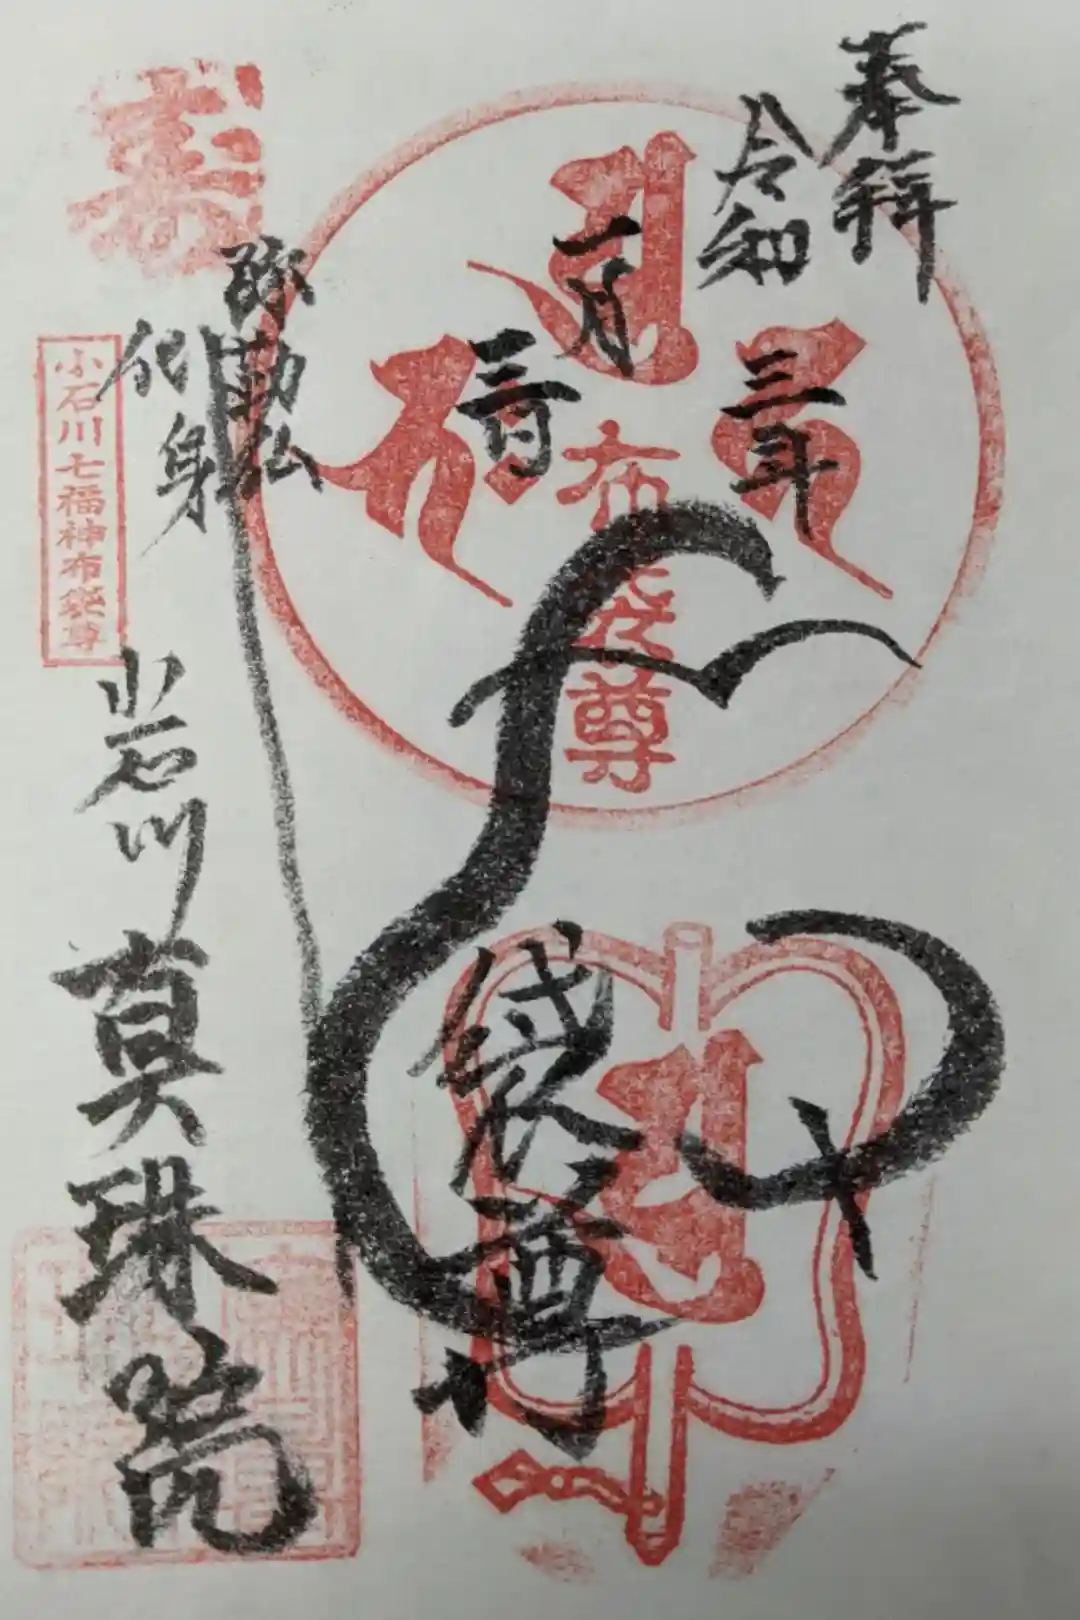 奉拝
令和三年
一月三日
布袋尊
布袋尊
弥勒仏
化身
小石川七福神布袋尊
小石川
真珠院